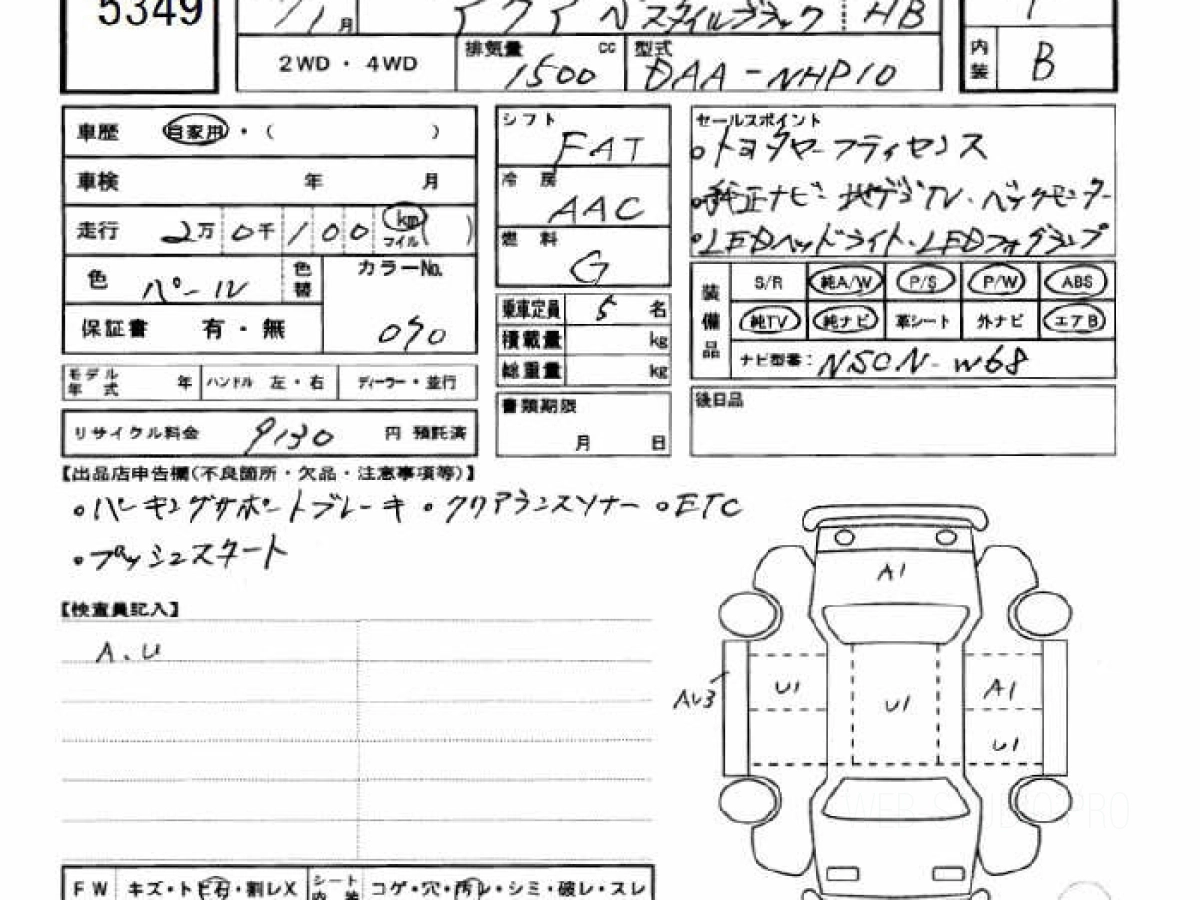 5349
1月
スタイルブラック HB
2WD・4WD
排気量 1500 cc
型式 DAA-NHP10
内装 B
車歴 自家用・( )
車検 年 月
走行 2万0千100 km マイル( )
色 パール
色替
カラーNo. 070
保証書 有・無
モデル年式 年
ハンドル 左・右
ディーラー・並行
リサイクル料金 9130 円 預託済
シフト FAT
冷房 AAC
燃料 G
乗車定員 5 名
積載量 kg
総重量 kg
書類期限 月 日
セールスポイント
・トヨタセーフティセンス
・純正ナビ・地デジTV・バックモニター
・LEDヘッドライト・LEDフォグランプ
装備品
S/R 純A/W P/S P/W ABS
純TV 純ナビ 革シート 外ナビ エアB
ナビ型番: NSCN-W68
後日品
【出品店申告欄(不良箇所・欠品・注意事項等)】
・パーキングサポートブレーキ ・クリアランスソナー ・ETC
・プッシュスタート
【検査員記入】
A.U
A1
AU3
U1
U1
A1
U1
FW キズ・トビ石・割レX
シート内装 コゲ・穴・汚レ・シミ・破レ・スレ